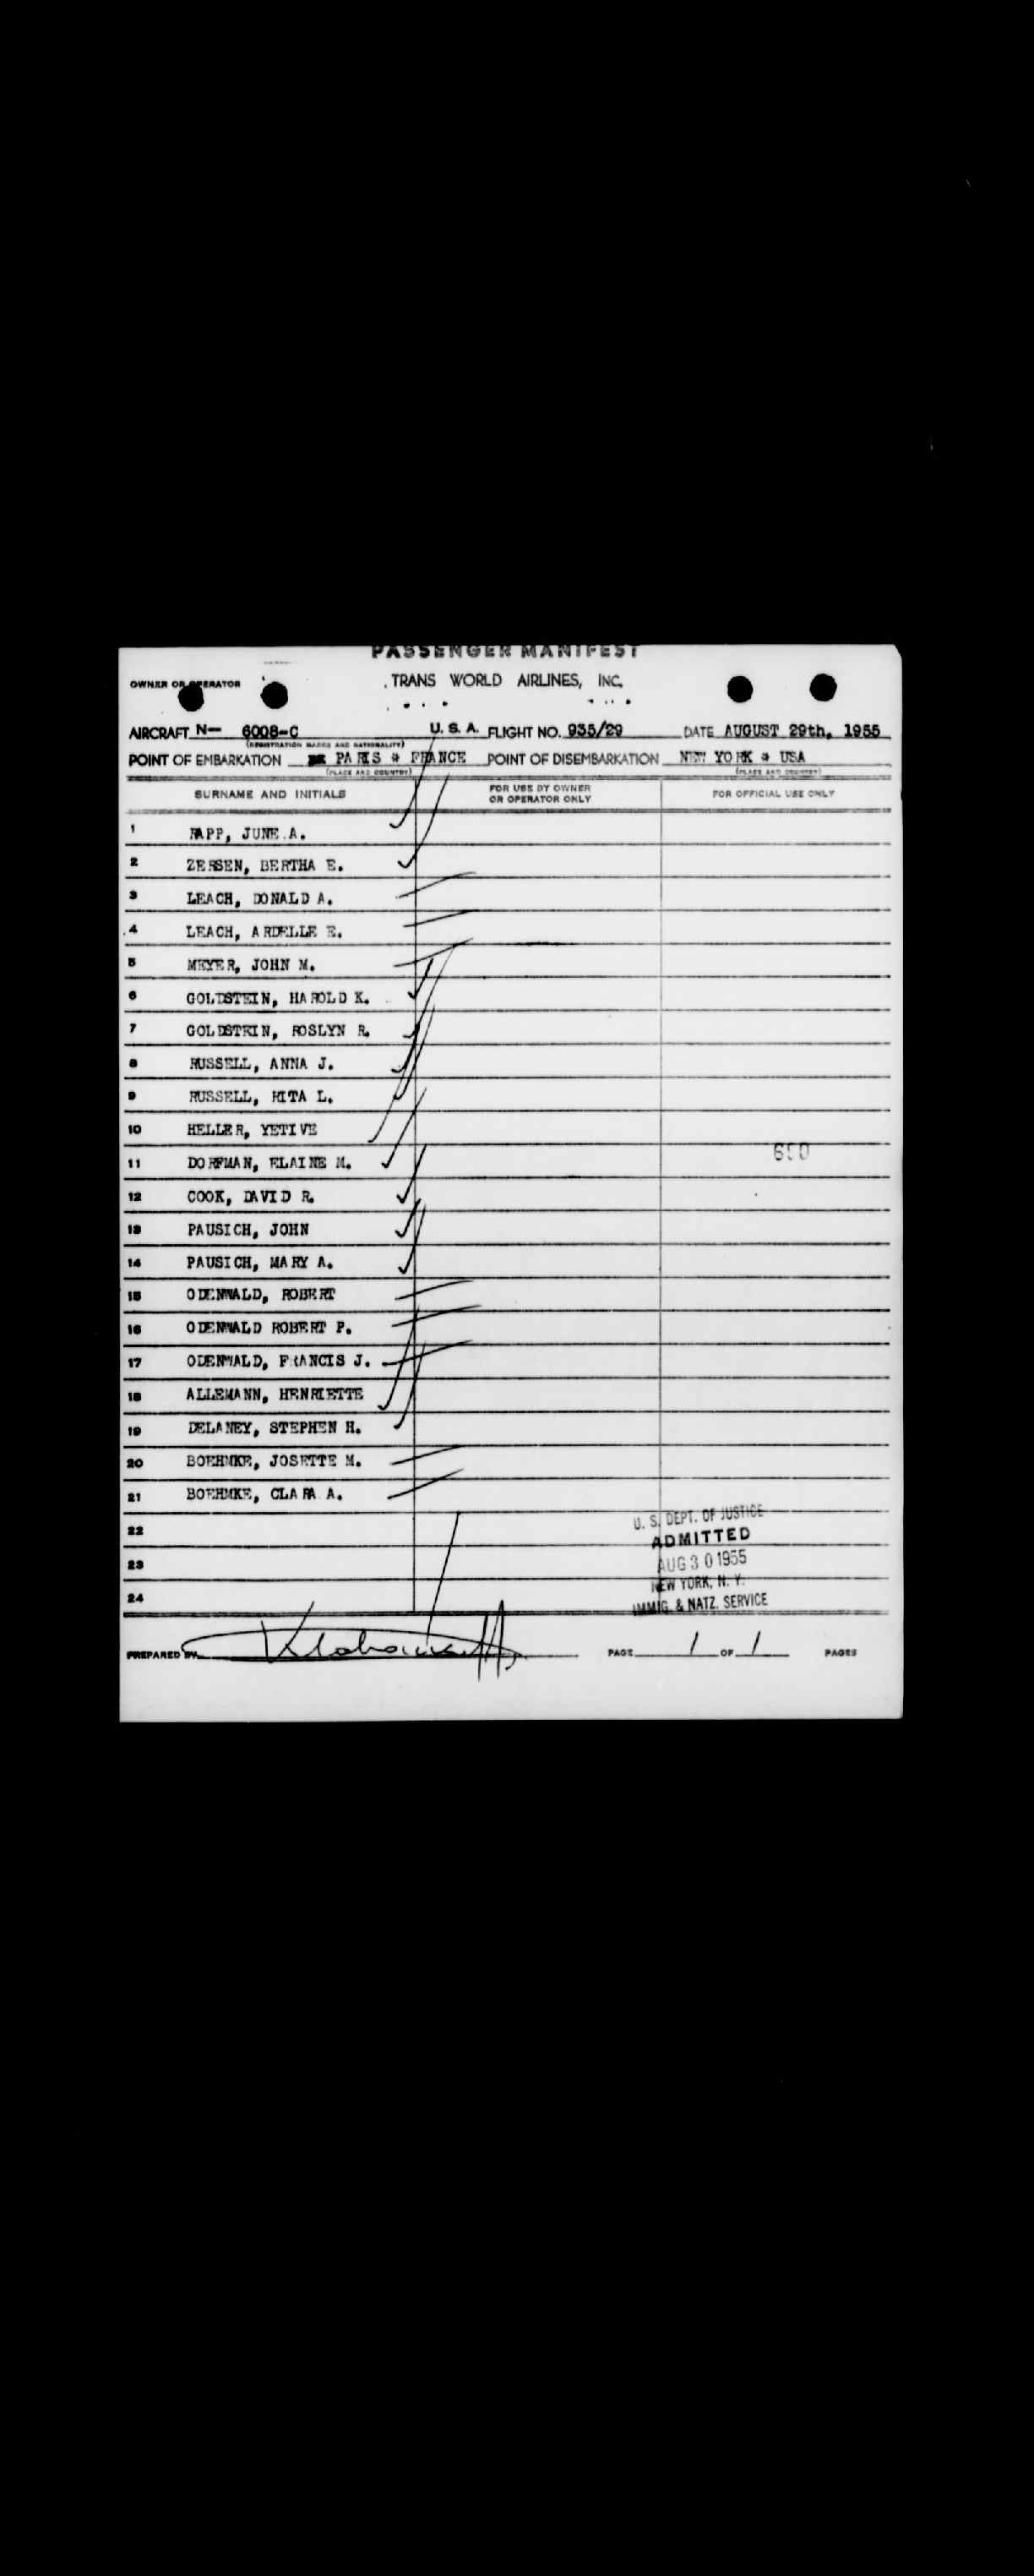 PASSENGER MANIFEST
OWNER OR OPERATOR TRANS WORLD AIRLINES, INC.
AIRCRAFT N— 6008-C U. S. A. FLIGHT NO. 935/29 DATE AUGUST 29th, 1955
(REGISTRATION MARKS AND NATIONALITY)
POINT OF EMBARKATION PARIS * FRANCE POINT OF DISEMBARKATION NEW YORK * USA
(PLACE AND COUNTRY) (PLACE AND COUNTRY)
SURNAME AND INITIALS FOR USE BY OWNER OR OPERATOR ONLY FOR OFFICIAL USE ONLY
1 JUNE A.
2 ZERSEN, BERTHA E.
3 LEACH, DONALD A.
4 LEACH, ARDELLE E.
5 MEYER, JOHN M.
6 GOLDSTEIN, HAROLD K.
7 GOLDSTEIN, ROSLYN R.
8 RUSSELL, ANNA J.
9 RUSSELL, RITA L.
10 HELLER, YETIVE
11 DORFMAN, ELAINE M.
12 COOK, DAVID R.
13 PAUSICH, JOHN
14 PAUSICH, MARY A.
15 ODENWALD, ROBERT
16 ODENWALD ROBERT P.
17 ODENWALD, FRANCIS J.
18 ALLEMANN, HENRIETTE
19 DELANEY, STEPHEN H.
20 BOEHMKE, JOSETTE M.
21 BOEHMKE, CLARA A.
22
23
24
U. S. DEPT. OF JUSTICE
ADMITTED
AUG 30 1955
NEW YORK, N. Y.
IMMIG. & NATZ. SERVICE
PREPARED BY PAGE 1 OF 1 PAGES